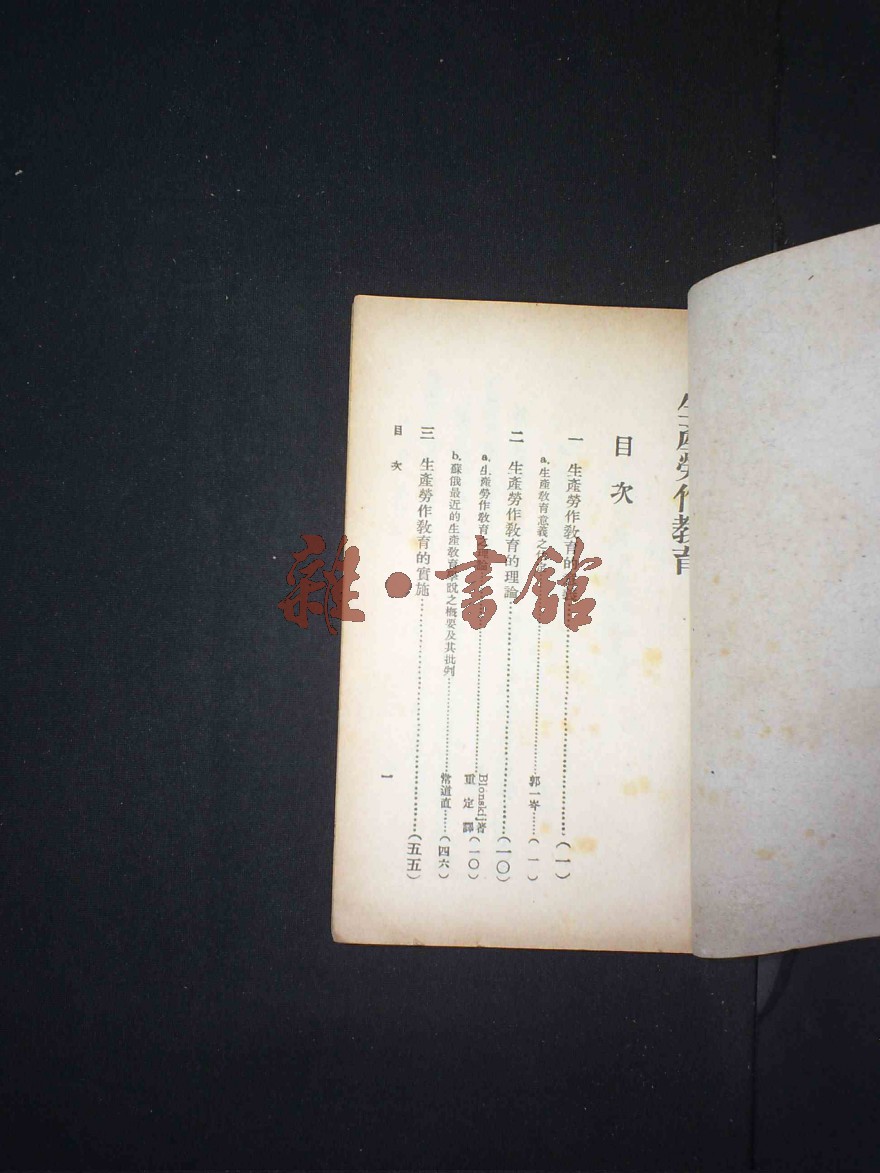 生產勞作教育
目次
一 生產勞作教育的……(一)
a. 生產教育意義之……郭一岑……(一)
二 生產勞作教育的理論……(一〇)
a. 生產勞作教育……Blonskij著 重定譯(一〇)
b. 蘇俄最近的生產教育學說之概要及其批判……常道直……(四六)
三 生產勞作教育的實施……(五五)
目次
一
雜·書館